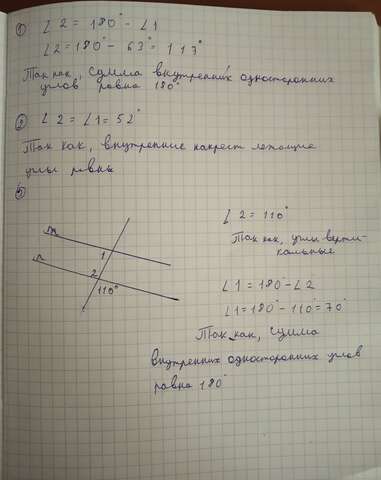 ① ∠2 = 180° - ∠1
∠2 = 180° - 63° = 117°
Так как, сумма внутренних односторонних
углов равна 180°
② ∠2 = ∠1 = 52°
Так как, внутренние накрест лежащие
углы равны
③
m
n
1
2
110°
∠2 = 110°
Так как, углы верти-
кальные
∠1 = 180° - ∠2
∠1 = 180° - 110° = 70°
Так как, сумма
внутренних односторонних углов
равна 180°